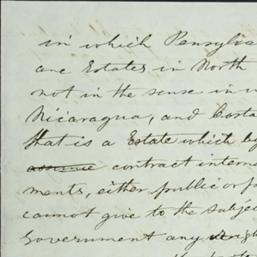 in which Pensylva
are Estates in North
not in the sense in w
Nicaragua, and Costa
that is a Estate which by
assume contract intern
ments, either public or p
cannot give to the subje
Government any righ